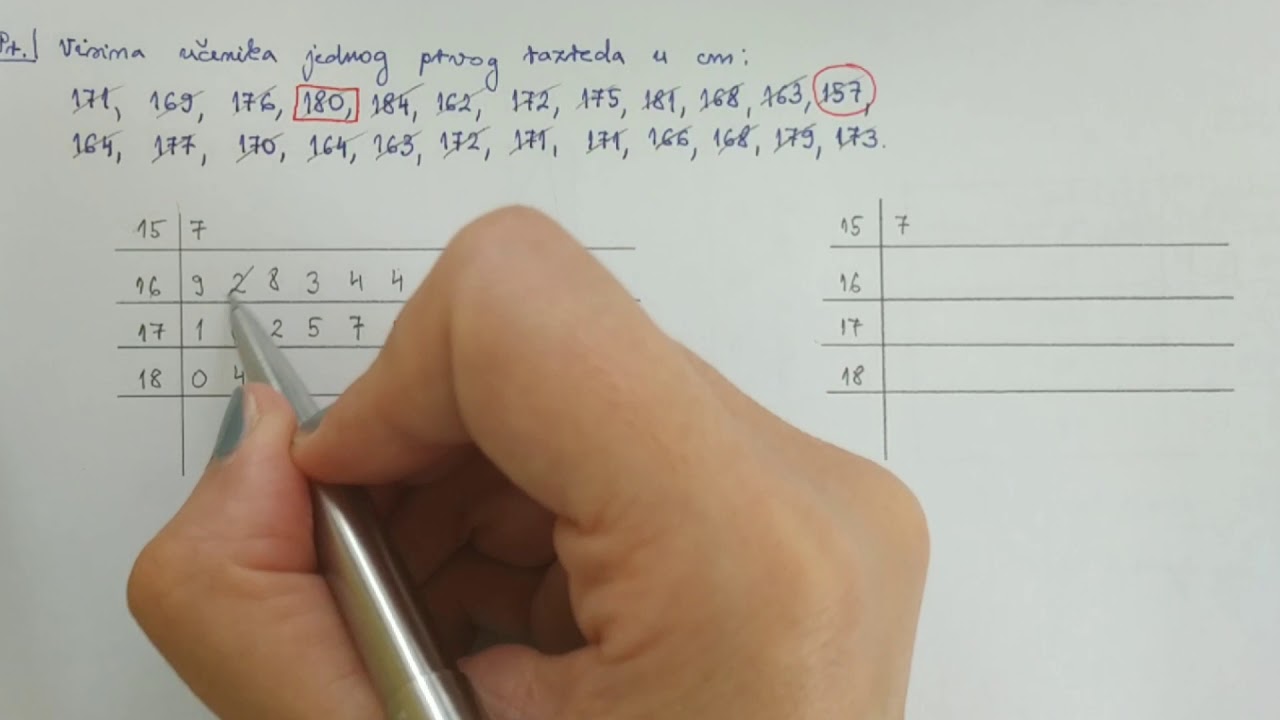 Pr. Visina učenika jednog prvog razreda u cm:
171, 169, 176, 180, 184, 162, 172, 175, 181, 168, 163, 157,
164, 177, 170, 164, 163, 172, 171, 171, 166, 168, 179, 173.
15 7
16 9 2 8 3 4 4
17 1 2 5 7
18 0 4
15 7
16
17
18